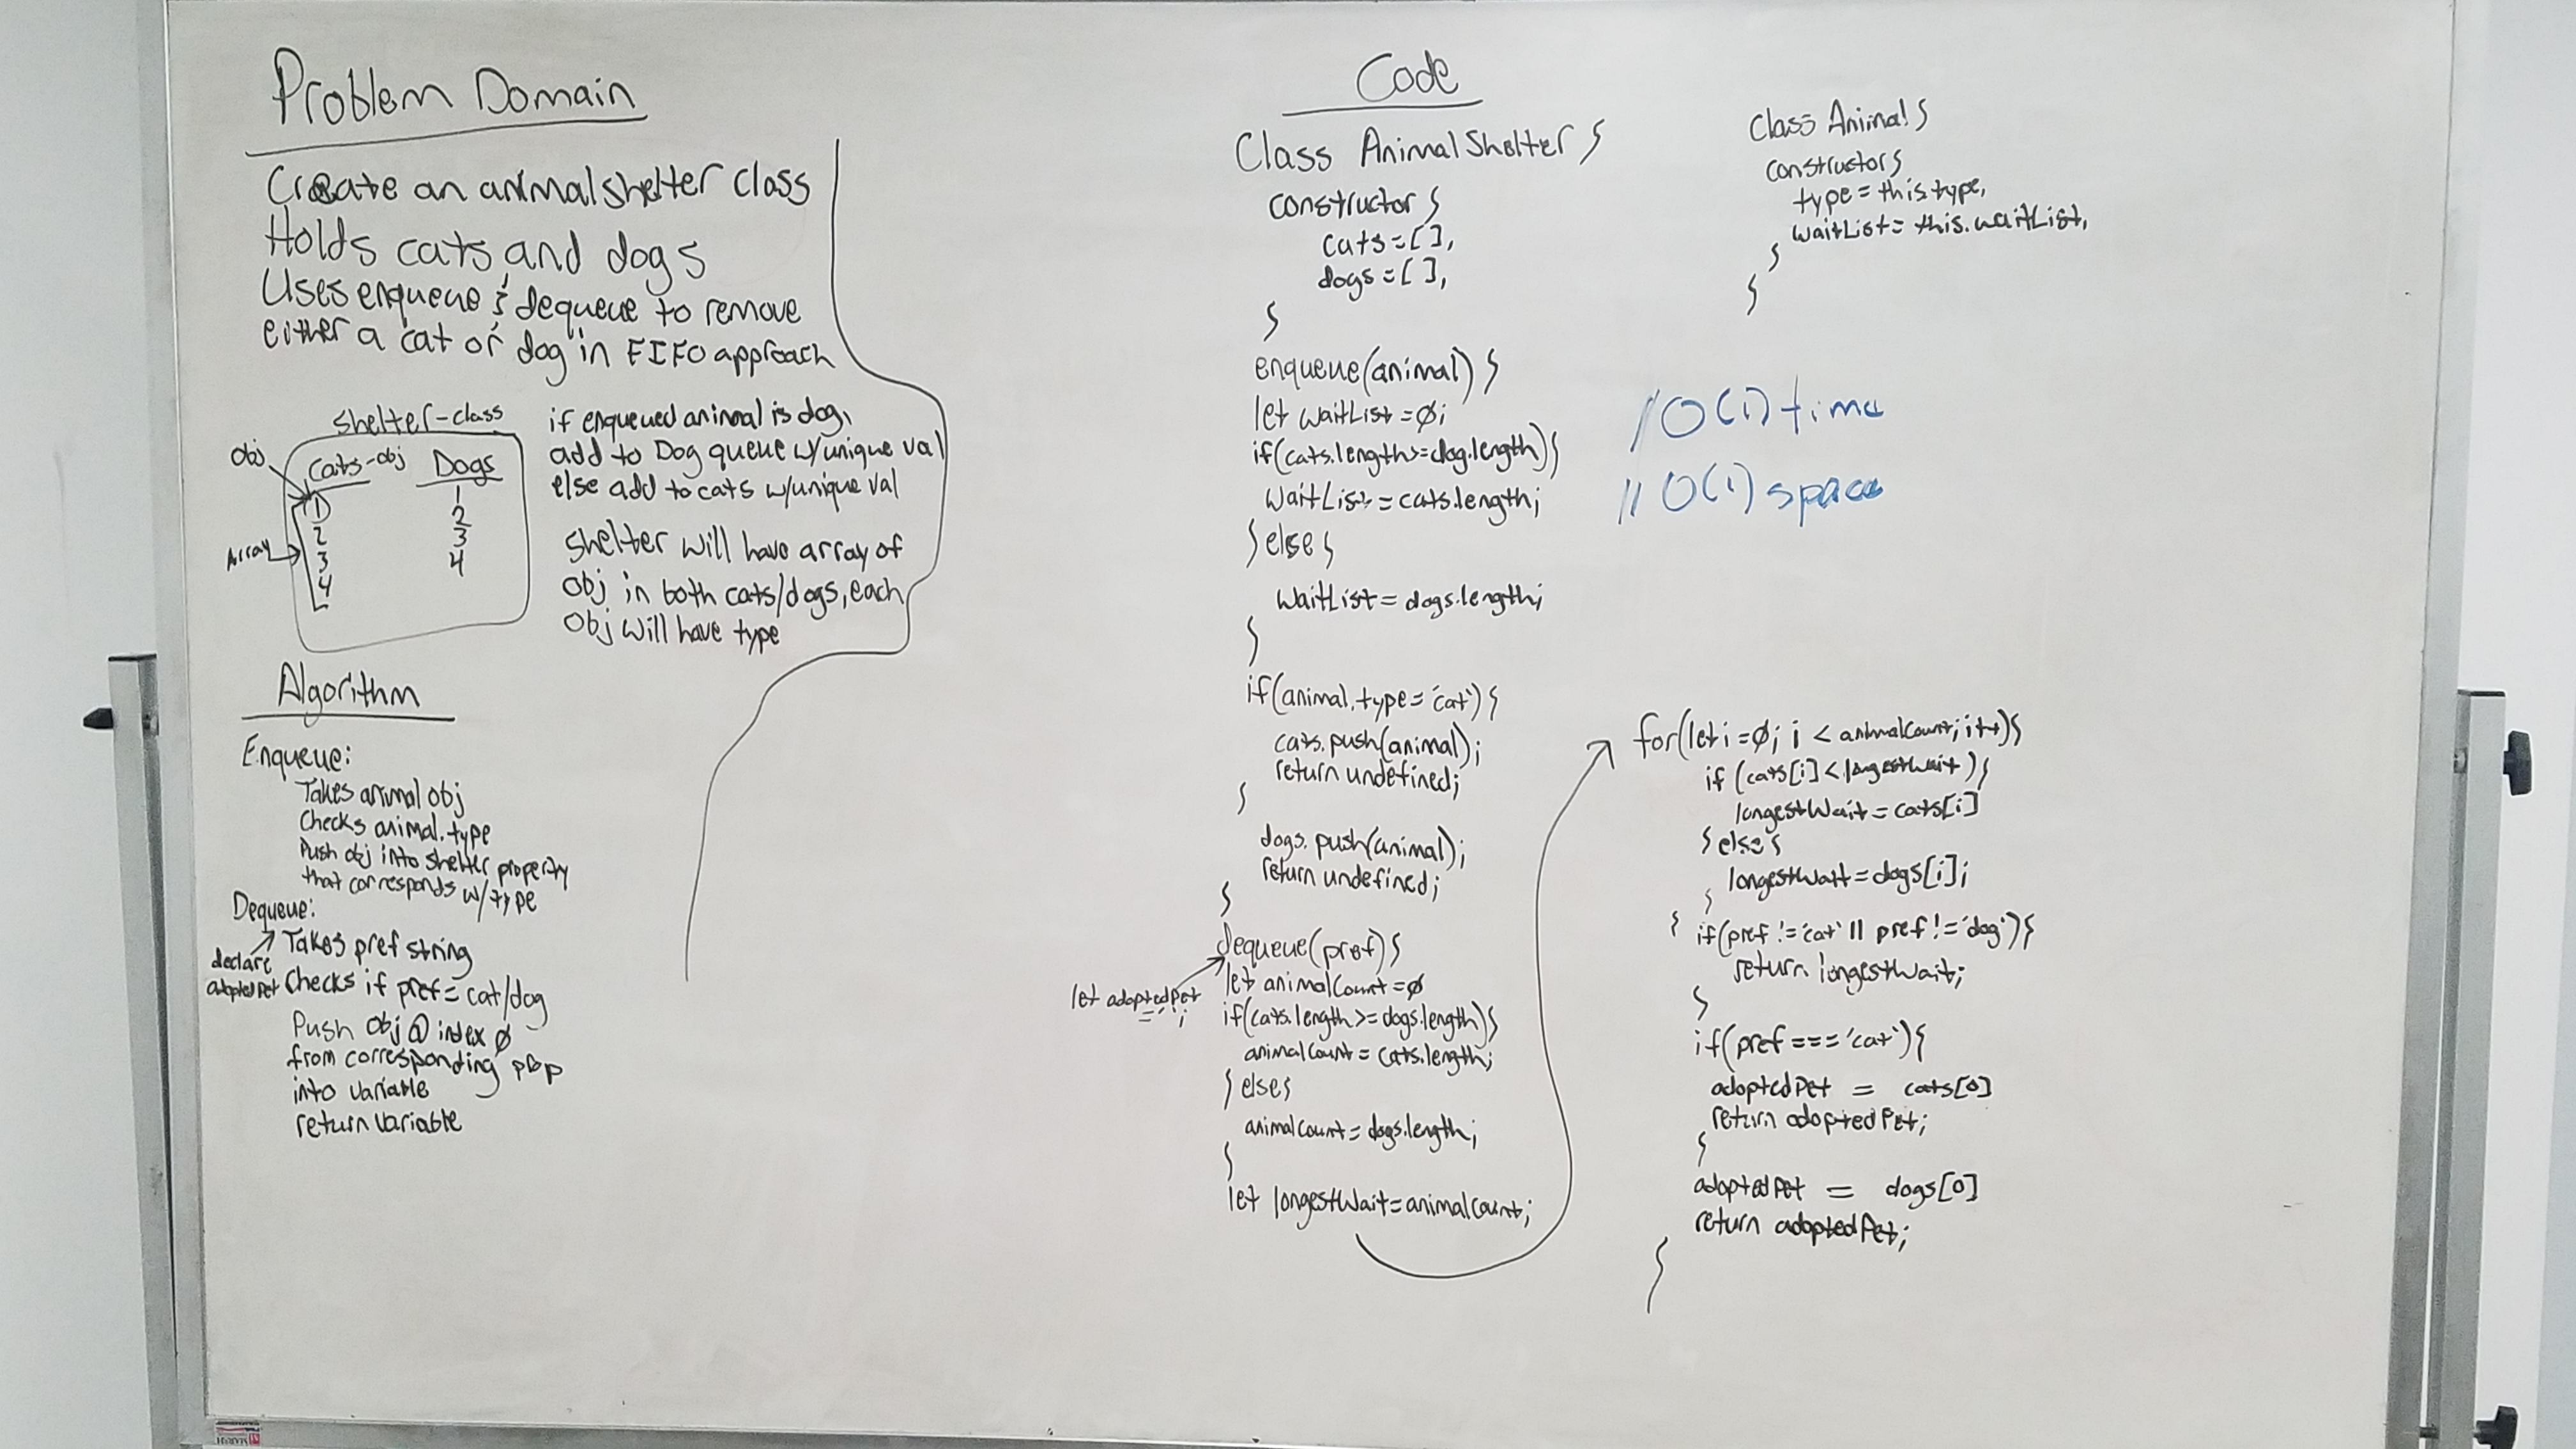 Problem Domain
Create an animalshelter class
Holds cats and dogs
Uses enqueue & dequeue to remove
either a cat or dog in FIFO approach
shelter-class
Obj
Cats-obj Dogs
1 1
2 2
3 3
4 4
Array
if enqueued animal is dog,
add to Dog queue w/unique val
else add to cats w/unique val
shelter will have array of
obj in both cats/dogs, each
obj will have type
Algorithm
Enqueue:
Takes animal obj
Checks animal.type
Push obj into shelter property
that corresponds w/type
Dequeue:
declare
adoptedPet
Takes pref string
Checks if pref = cat/dog
Push Obj @ index 0
from corresponding prop
into variable
return variable
Code
Class AnimalShelter {
constructor {
cats = [ ],
dogs = [ ],
}
enqueue(animal) {
let waitList = 0;
if(cats.length >= dog.length){
waitList = cats.length;
} else {
waitList = dogs.length;
}
if(animal.type = 'cat') {
cats.push(animal);
return undefined;
}
dogs.push(animal);
return undefined;
}
dequeue(pref) {
let adoptedPet
= '';
let animalCount = 0
if(cats.length >= dogs.length){
animalCount = cats.length;
} else {
animalCount = dogs.length;
}
let longestWait = animalCount;
for(let i = 0; i < animalCount; i++){
if (cats[i] < longestWait ) {
longestWait = cats[i]
} else {
longestWait = dogs[i];
}
} if(pref != 'cat' || pref != 'dog') {
return longestWait;
}
if(pref === 'cat') {
adoptedPet = cats[0]
return adoptedPet;
}
adoptedPet = dogs[0]
return adoptedPet;
}
Class Animal {
constructor {
type = this.type,
waitList = this.waitList,
}
}
// O(1) time
// O(1) space